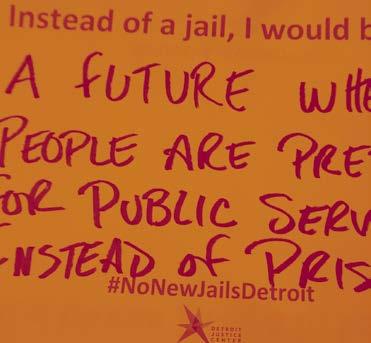 Instead of a jail, I would b
A FUTURE WHE
PEOPLE ARE PRE
FOR PUBLIC SERV
INSTEAD OF PRIS
#NoNewJailsDetroit
DETROIT
JUSTICE
CENTER